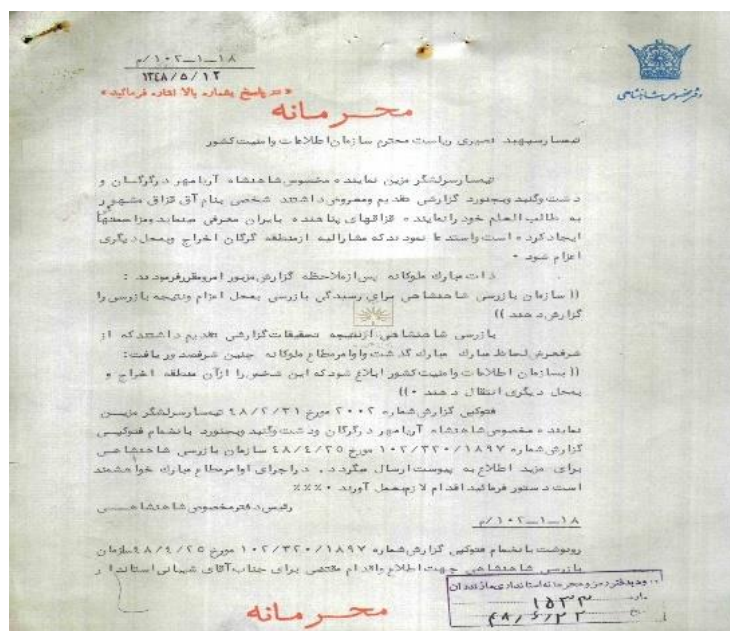 دفتر مخصوص شاهنشاهی
۱۸—۱—۱۰۲/م
۱۳۴۸/۵/۱۲
«در پاسخ بشماره بالا اشاره فرمائید»
محرمانه
تیمسار سپهبد نصیری ریاست محترم سازمان اطلاعات وامنیت کشور
تیمسار سرلشگر مزین نماینده مخصوص شاهنشاه آریامهر درگرگان و
دشت وگنبد وبجنورد گزارشی تقدیم ومعروض داشتند شخصی بنام آق قزاق مشهور
به طالب العلم خود را نماینده قزاقهای پناهنده بایران معرفی مینماید ومزاحمتهائی
ایجاد کرده است واستدعا نمودند که مشارالیه ازمنطقه گرگان اخراج وبمحل دیگری
اعزام شود ۰
ذات مبارک ملوکانه پس ازملاحظه گزارش مزبور امرومقررفرمودند :
(( سازمان بازرسی شاهنشاهی برای رسیدگی بازرسی بمحل اعزام ونتیجه بازرسی را
گزارش دهند ))
بازرسی شاهنشاهی ازنتیجه تحقیقات گزارشی تقدیم داشتند که از
شرفعرض لحاظ مبارک گذشت واوامرمطاع ملوکانه چنین شرفصدور یافت :
(( بسازمان اطلاعات وامنیت کشور ابلاغ شود که این شخص را ازآن منطقه اخراج و
بمحل دیگری انتقال دهند ۰))
فتوکپی گزارش شماره ۲۰۰۲ مورخ ۴۸/۲/۳۱ تیمسار سرلشگر مزین
نماینده مخصوص شاهنشاه آریامهر درگرگان ودشت وگنبد وبجنورد بانضمام فتوکپی
گزارش شماره ۱۰۲/۳۲۰/۱۸۹۷ مورخ ۴۸/۴/۲۵ سازمان بازرسی شاهنشاهی
برای مزید اطلاع به پیوست ارسال میگردد ۰ دراجرای اوامرمطاع مبارک خواهشمند
است دستور فرمائید اقدام لازم بعمل آورند ۰٪٪٪
رئیس دفترمخصوص شاهنشاهی
۱۸—۱—۱۰۲/م
رونوشت بانضمام فتوکپی گزارش شماره ۱۰۲/۳۲۰/۱۸۹۷ مورخ ۴۸/۴/۲۵ سازمان
بازرسی شاهنشاهی جهت اطلاع واقدام مقتضی برای جناب آقای شیبانی استاندار
دفتر رمز و محرمانه استانداری مازندران
۱۵۳۳
۴۸/۶/۲۲
محرمانه